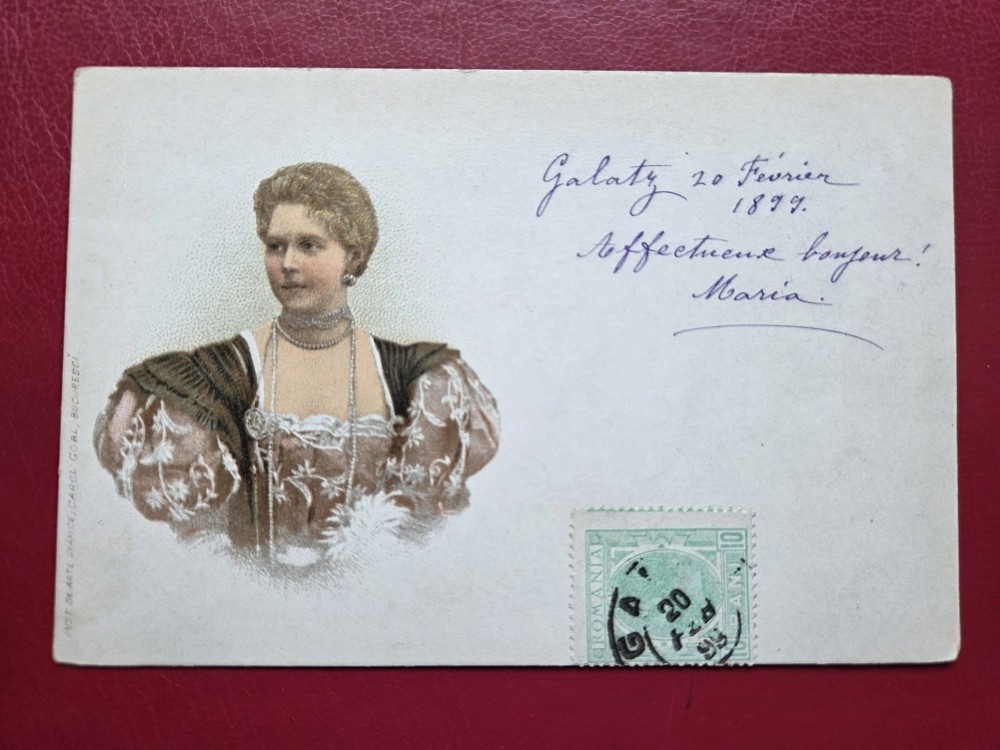 Galatz 20 Février
1899.
Affectueux bonjour!
Maria.
INST. DE ARTE GRAFICE, CAROL GÖBL, BUCURESCĬ
ROMANIA
10
BANI
10
GA
20
FEB
99